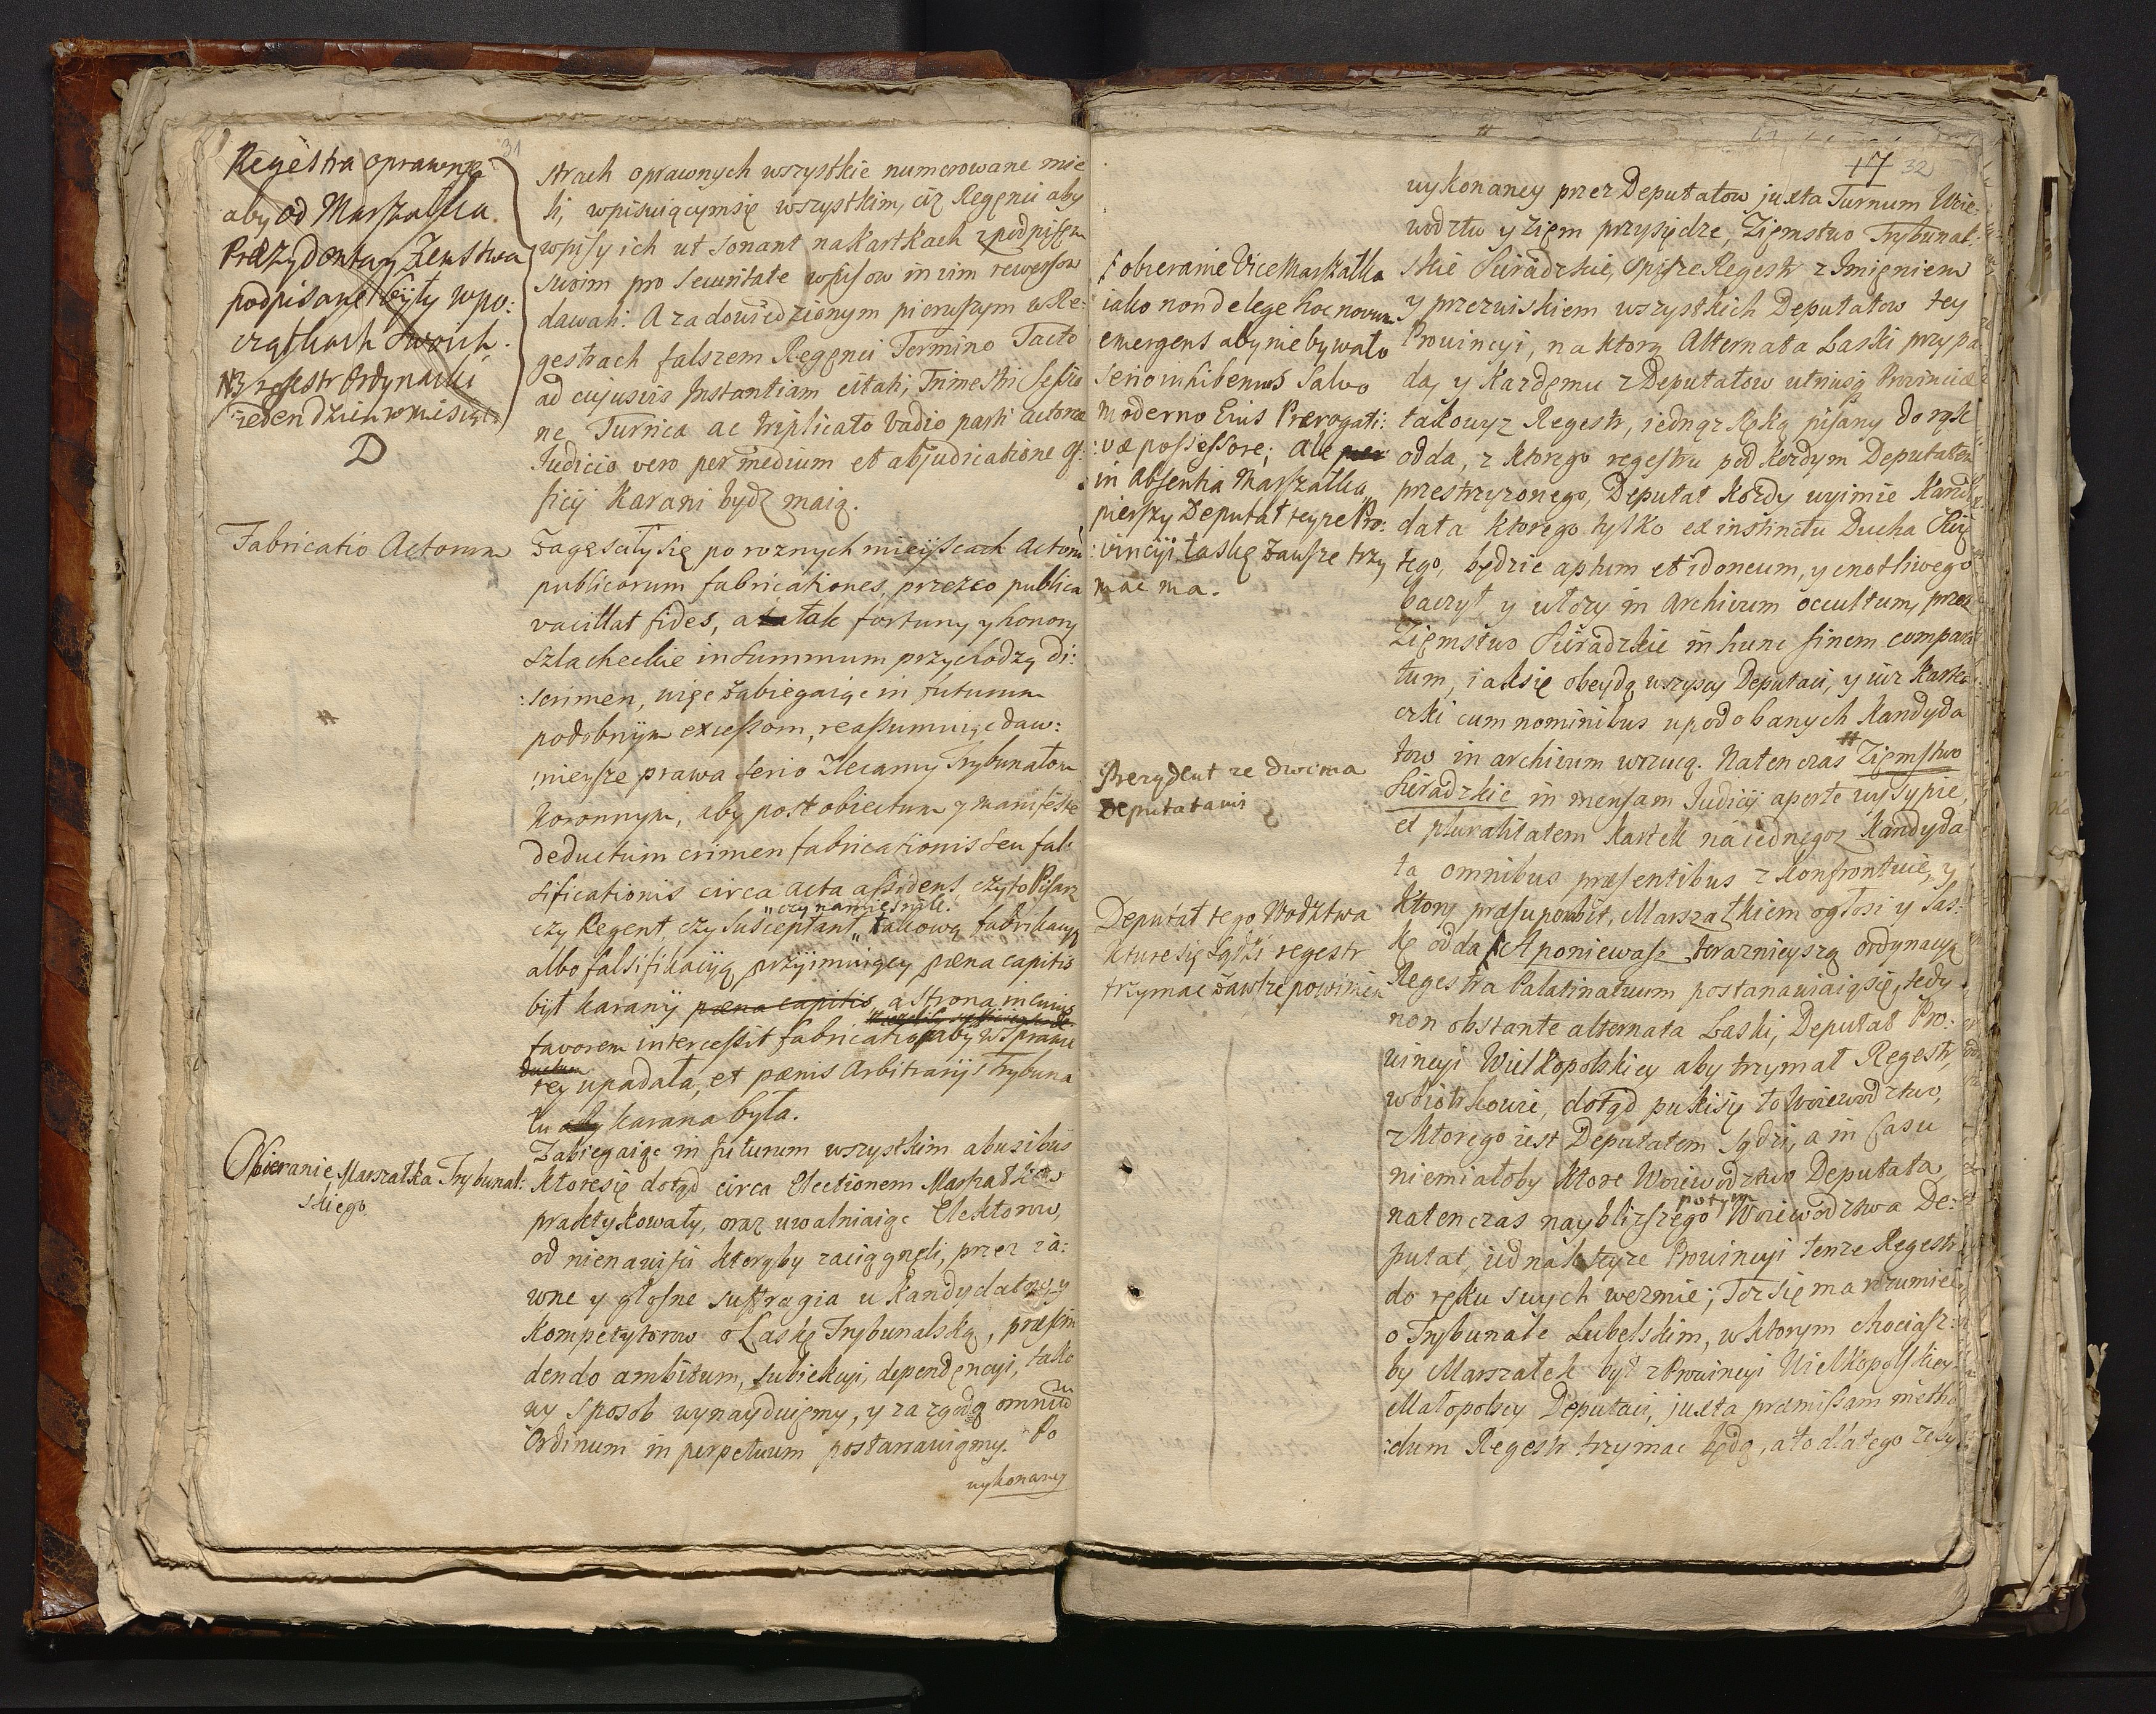 31
Regestra oprawne
aby od Marszałka
Prezydenta y Zemstwa
podpisane były w po:
czątkach swoich.
NB regestr Ordynarij
ieden dzien w miesiąc
D
strach oprawnych wszystkie numerowane mie
li, wpisuiącym się wszystkim, ciż Regęnci aby
wpisy ich ut sonant na kartkach z podpisęm
swoim pro securitate wpisow in vim rewersow
dawali. A za dowiedzionym pierwszym w Re:
gestrach falszem Regęnci Termino Tacto
ad cujusvis Instantiam citati, Trimestri Sessio
ne Turrica ac triplicato vadio parti actorea
Judicio vero per medium et abjudicatione of:
ficij karani bydź maią.
Fabricatio Actorum
Zagęsciły się po roznych mieyscach Actorū
publicorum fabricationes, przez co publica
vacillat fides, a tak fortuny y honory
szlacheckie in summum przychodzą di:
:scrimen, więc zabiegaiąc in futurum
podobnym excessom, reassumuiąc daw:
:nieysze prawa serio zlecamy Trybunałom
Koronnym, aby post obiectum y manifeste
deductum crimen fabricationis seu fal:
sificationis circa acta assidens czyto Pisarz
„czy namięsnik.
czy Regent czy Susceptant „ takową fabrikacyą
albo falsifikacyią przyimuiący pæna capitis
był karany pæna capitis, a strona in cuius
favorem intercessit fabricatio, aby w sprawie
tey upadała, et pænis Arbitrarijs Trybuna
łu aby karana była.
Obieranie Marszałka Trybunal:
skiego
Zabiegaiąc in futurum wszystkim abusibus
ktore się dotąd circa Electionem Marszałkow
praktykowały, oraz uwalniaiąc Elektorow,
od nienawisci ktorąby zaciągnęli, przez ia:
wne y głosne suffragia u Kandydatow, y
Kompetytorow o Laskę Trybunalską, præscin
dendo ambitum, subiekcyi, dependęncyi, tako
wy sposob wynayduięmy, y za zgodą omnium
Ordinum in perpetuum postanawiamy. Po
wykonaney
17 32
obieranie Vice Marszałka
iako non de lege hoc novum
emergens aby nie bywało
serio inhibemus salvo
moderno Eius Prærogati:
:væ possessore; ale
in Absentia Marszałka
pierszy Deputat teyze Pro:
:vincyi laskę zawsze trzy
mac ma.
Prezydent ze dwima
Deputatami
Deputat tego Wodztwa
kture się sądzi regestr
trzymac zawsze powinien
wykonaney przez Deputatow juxta Turnum Woie:
wodztw y Ziem przysiędze, Ziemstwo Trybunal:
skie Siradzkie, spisze Regestr z Imięniem
y przezwiskiem wszystkich Deputatow tey
Prowincyi, na ktorą Alternata Laski przypa
da, y kazdemu z Deputatow utriusq Provinciæ
takowyz Regestr, iednąz Ręką pisany do rąk
odda, z ktorego regestru pod kazdym Deputatem
przestrzyzonego, Deputat kozdy wyimie Kandi
data ktorego tylko ex instinctu Ducha Swię
tego, będzie aptum et idoneum, y cnotliwego
baczył y włozy in Archivum occultum, przez
Ziemstwo Siradzkie in hunc finem compara
tum, iak się obeydą wszyscy Deputaci, y iuz kartę
czki cum nominibus upodobanych Kandyda
tow in archivum wrzucą. Na ten czas Ziemstwo
Siradzkie in mensam Judicij aperte wysypie,
et pluralitatem kartek na iednegoz Kandyda
ta omnibus præsentibus zkonfrontuie, y
ktory præsuponbit, Marszałkiem ogłosi y las:
kę odda. A poniewasz terazniyszą ordynacyą
Regestra Palatinatuum postanawiaią się, tedy
non obstante alternata Laski, Deputat Pro:
wincyi Wielkopolskiey aby trzymał Regestr,
w Piotrkowie, dotąd puki się to Woiewodztwo,
z ktorego iest Deputatem sądzi, a in casu
niemiałoby ktore Woiewodztwo Deputata
potym
natenczas naybliższego Woiewodztwa De:
putat, iednak teyze Prowincyi tenze Regestr
do ręku swych wezmie; Toz się ma rozumiec
o Trybunale Lubelskim, w ktorym chociasz:
by Marszałek był z Prowincyi Wielkopolskiey
Małopolscy Deputaci, juxta præmissam metho
:dum Regestr trzymac będą, a to dlatego zeby